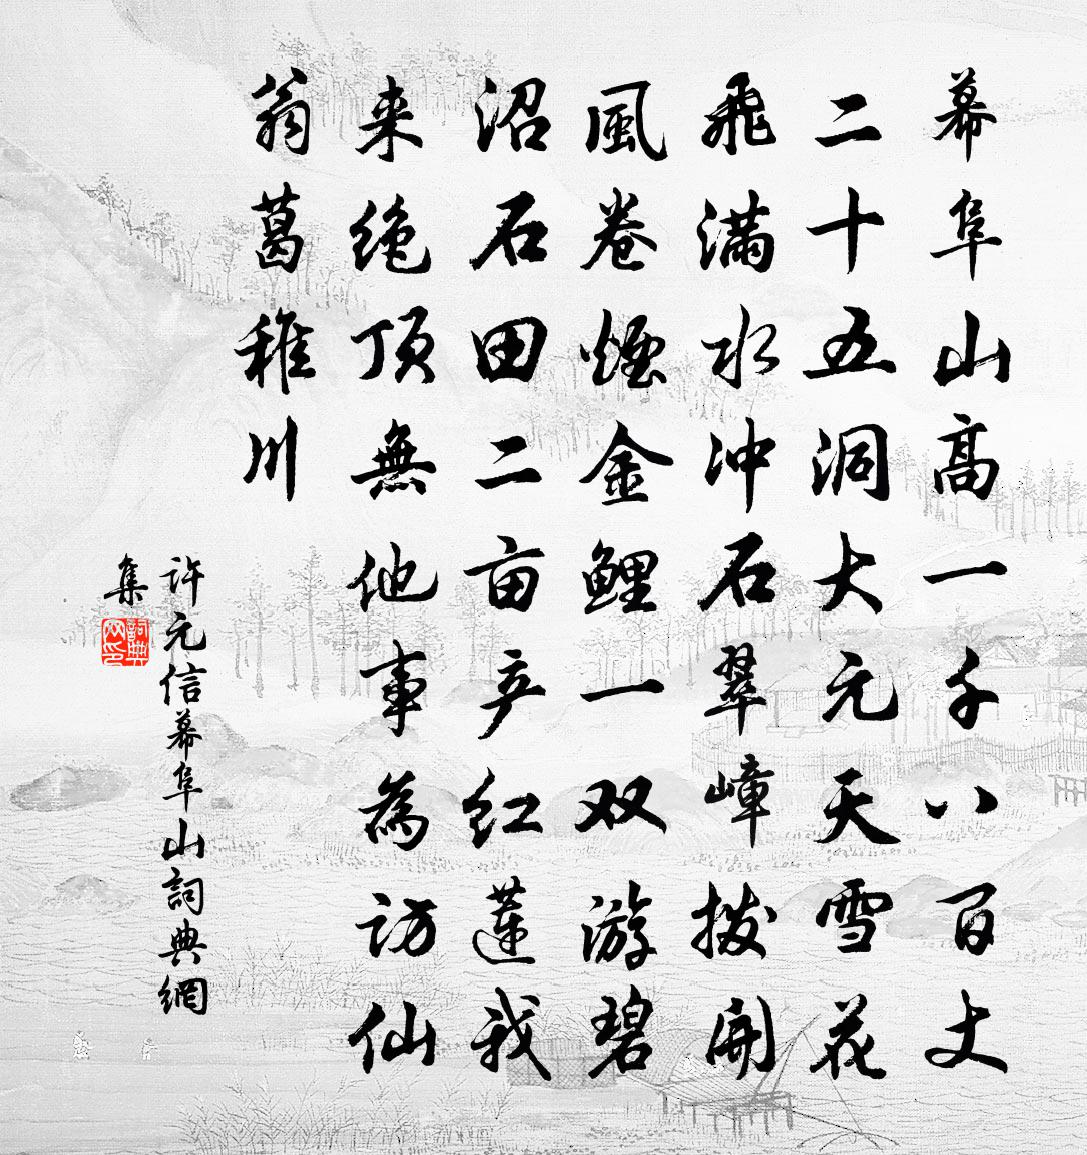 幕阜山高一千八百丈
二十五洞大元天雪花
飛滿水沖石翠嶂拨開
風卷煙金鯉一双游碧
沼石田二亩产红蓮我
来绝顶無他事為访仙
翁葛稚川
许元信幕阜山詞典網
集
詞典網印